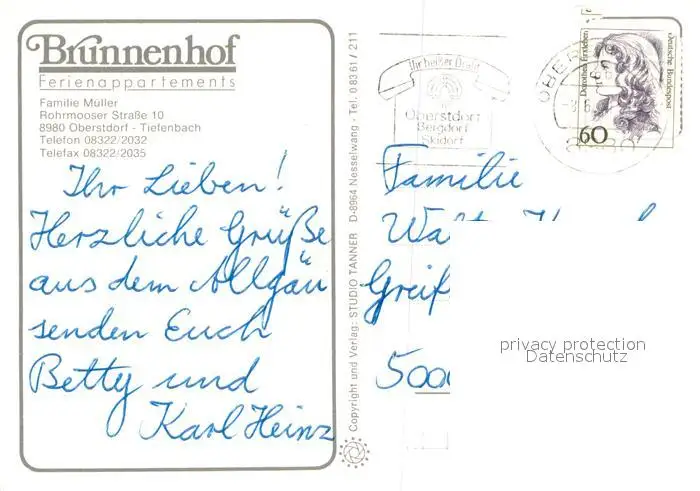 Brunnenhof
Ferienappartements
Familie Müller
Rohrmooser Straße 10
8980 Oberstdorf - Tiefenbach
Telefon 08322/2032
Telefax 08322/2035
Ihr Lieben!
Herzliche Grüße
aus dem Allgäu
senden Euch
Betty und
Karl Heinz
Copyright und Verlag: STUDIO TANNER D-8964 Nesselwang - Tel. 08361/211
Ihr heißer Draht
Oberstdorf
Bergdorf
Skidorf
Dorothea Erxleben
Deutsche Bundespost
60
Familie
privacy protection
Datenschutz